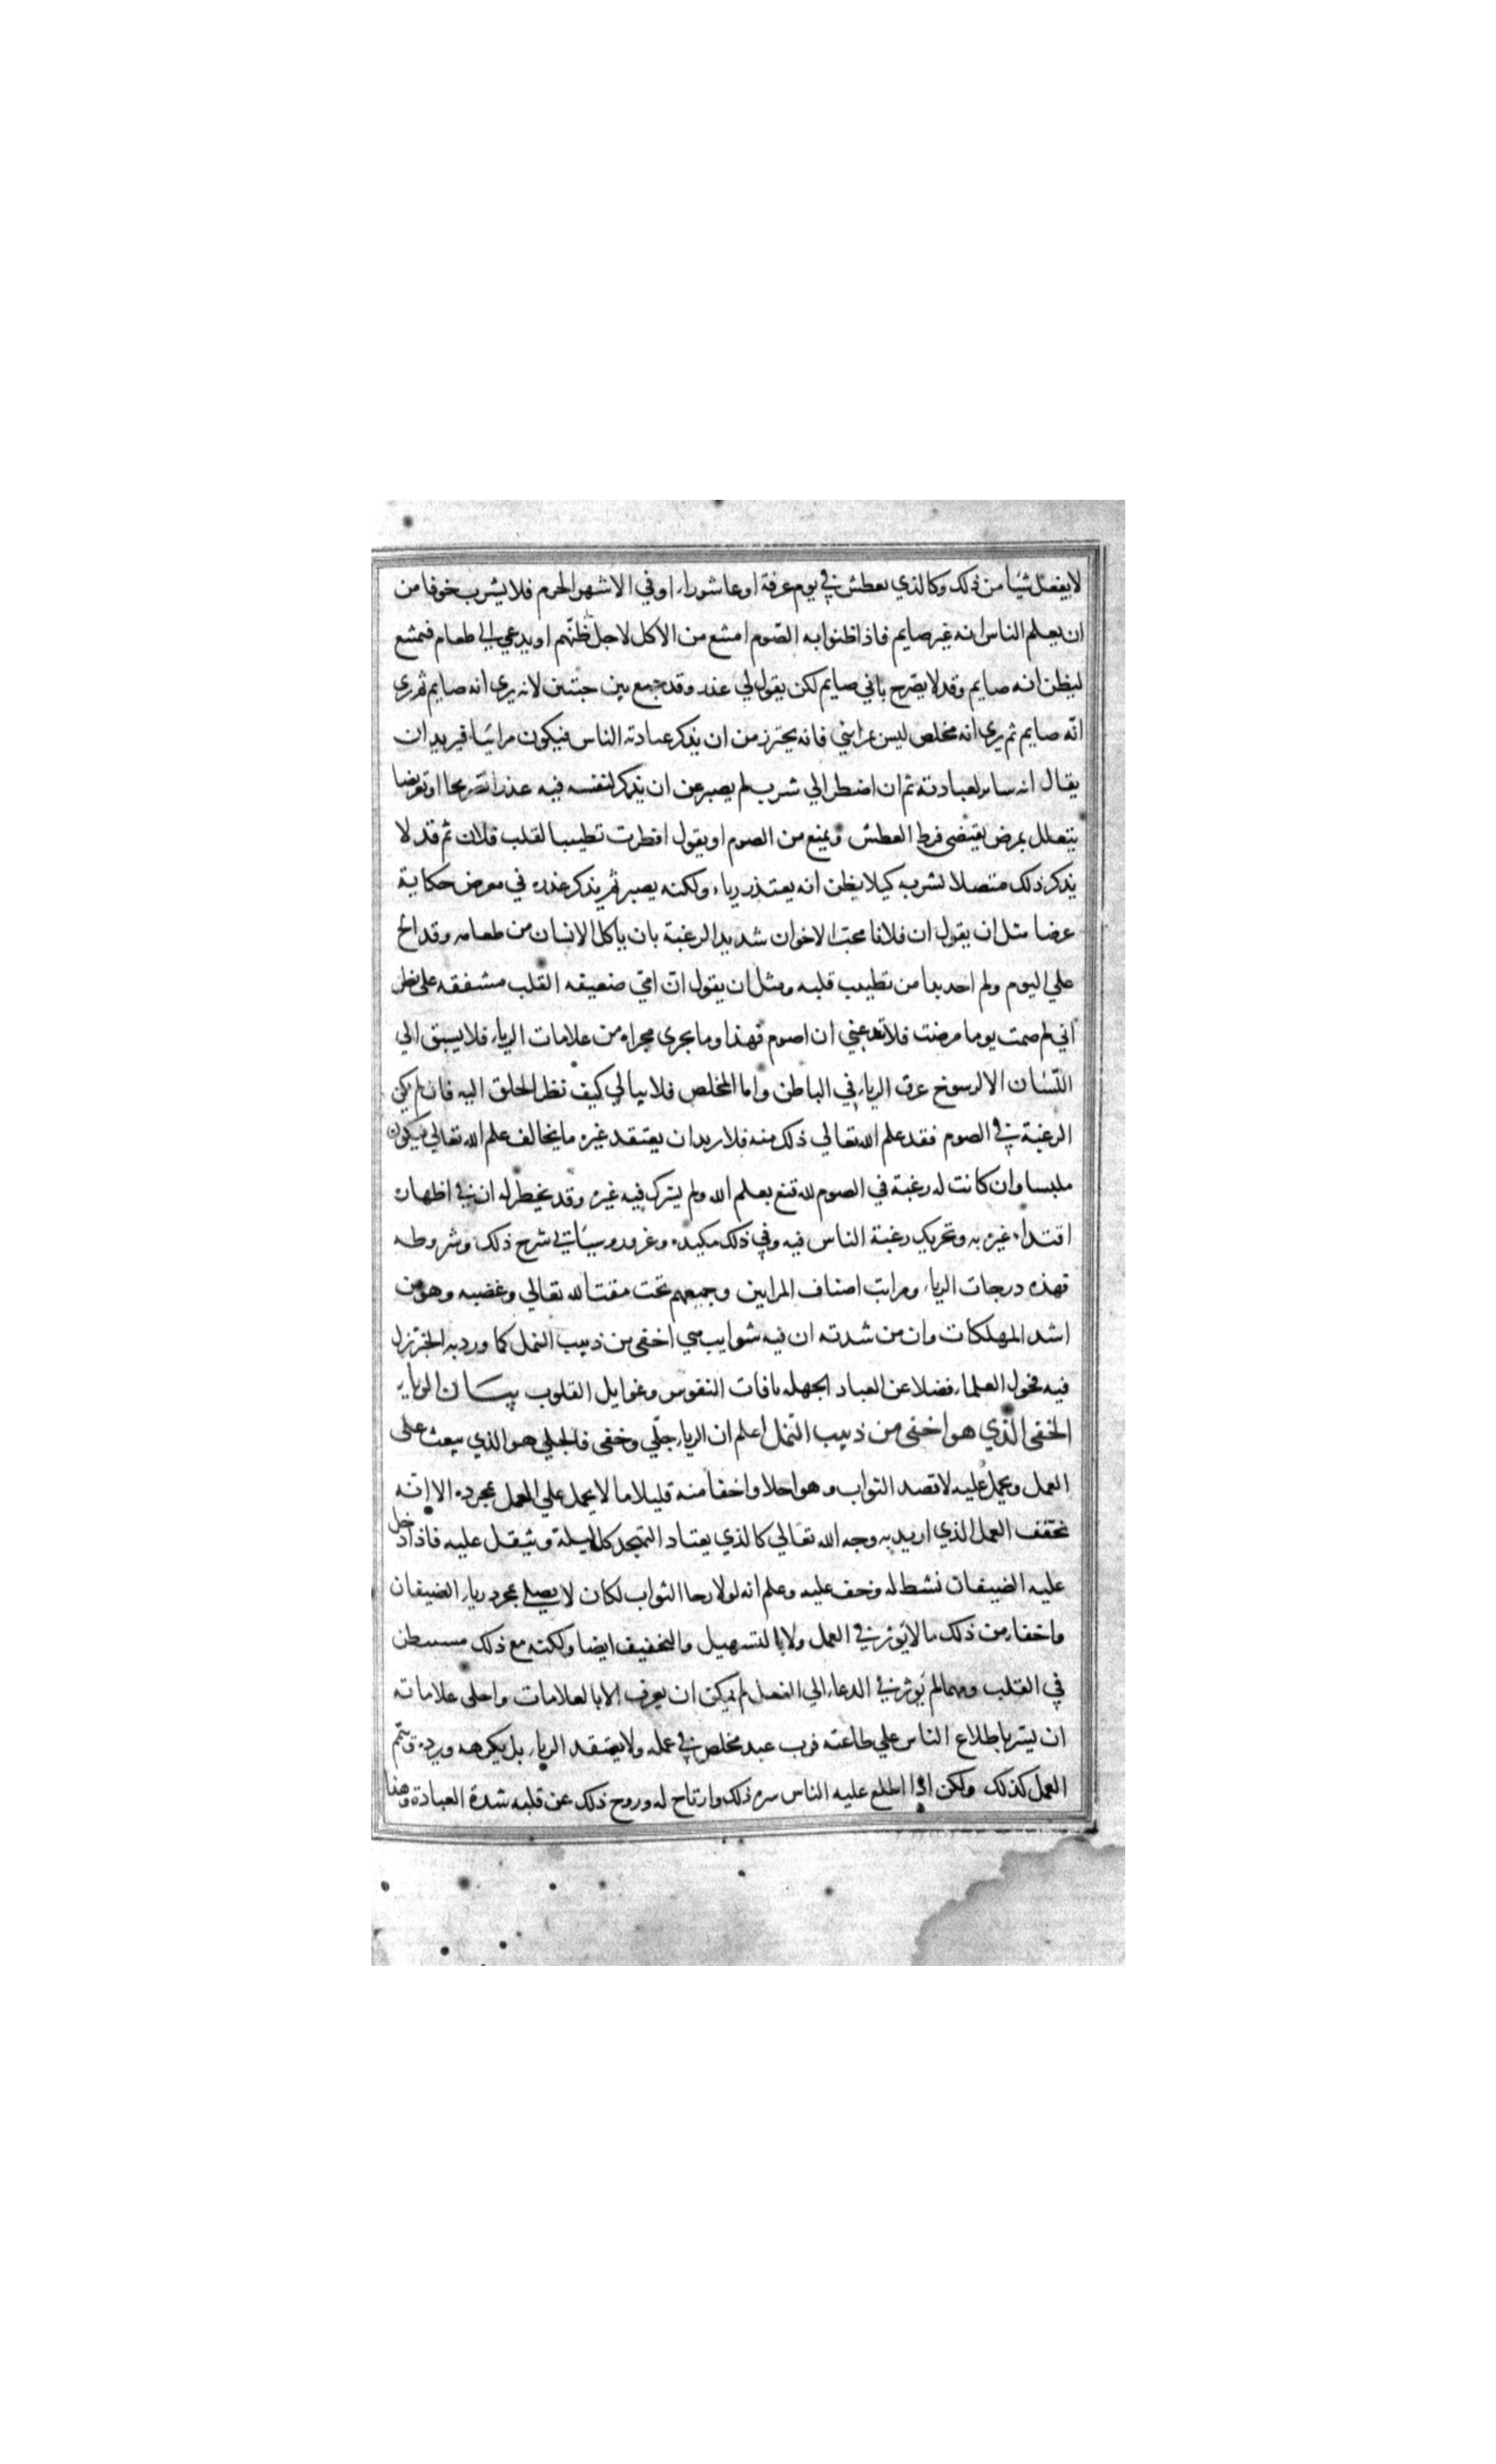 لا يفعل شيأ من ذلك وكالذي يعطش في يوم عرفة او عاشوراء او في الاشهر الحرم فلا يشرب خوفا من
ان يعلم الناس انه غير صايم فاذا ظنوا به الصّوم امتنع من الاكل لاجل ظنّهم او يدعي الى طعام فيمتنع
ليظن انه صايم وقد لا يصّرح باني صايم لكن يقول لي عذر وقد جمع بين خبثين لانه يري انه صايم ثم يري
انّه صايم ثم يري انه مخلص ليس بمرائي فانه يحترز من ان يذكر عبادته الناس فيكون مرائيا فيريد ان
يقال انه ساتر لعبادته ثم ان اضطر الي شرب لم يصبر عن ان يذكر لنفسه فيه عذرا تصريحا او تعريضا
يتعلل بمرض يقتضى فرط العطش ويمنع من الصوم او يقول افطرت تطييبا لقلب فلان ثم قد لا
يذكر ذلك متصلا لشربه كيلا يظن انه يعتذر رياء ولكنه يصبر ثم يذكر عذره في معرض حكاية
عرضا مثل ان يقول ان فلانا محبّ الاخوان شديد الرغبة بان ياكل الانسان من طعامه وقد الح
علي اليوم ولم اجد بدا من تطييب قلبه ومثل ان يقول انّ امّي ضعيفه القلب مشفقه على تظن
اني لم صمت يوما مرضت فلا تدعني ان اصوم فهذا وما يجرى مجراه من علامات الرياء فلا يسبق الي
اللسان الا لرسوخ عرق الرياء في الباطن واما المخلص فلا يبالي كيف نظر الخلق اليه فان لم يكن
الرغبة في الصوم فقد علم الله تعالي ذلك منه فلا يريد ان يعتقد غيره ما يخالف علم الله تعالي فيكون
ملبسا وان كانت له رغبة في الصوم لله قنع بعلم الله ولم يشرك فيه غيره وقد يخطر له ان في اظهاره
اقتداء غيره به وتحريك رغبة الناس فيه وفي ذلك مكيده وغرور وسياتي شرح ذلك وشروطه
فهذه درجات الرياء ومراتب اصناف المرايين وجميعهم تحت مقت الله تعالي وغضبه وهو من
اشد المهلكات وان من شدته ان فيه شوايب هي اخفى من دبيب النمل كما ورد به الخبر يزل
فيه فحول العلماء فضلا عن العباد الجهله بافات النفوس وغوايل القلوب بيان الرياء
الخفى الذي هو اخفى من دبيب النّمل اعلم ان الرياء جلّي وخفى فالجلي هو الذي يبعث على
العمل ويحمل عليه لا قصد الثواب وهو اجلا واخفا منه قليلا ما لا يحمل علي العمل بمجرده الا انّه
يخفف العمل الذي اريد به وجه الله تعالي كالذي يعتاد التهجد كل ليلة ويثقل عليه فاذا دخل
عليه الضيفان نشط له وخف عليه وعلم انه لولا رجا الثواب لكان لا يصلي بمجرد رياء الضيفان
واخفا من ذلك ما لا يوثر في العمل ولا بالتسهيل والتخفيف ايضا ولكنه مع ذلك مستبطن
في القلب ومهما لم يوثر في الدعاء الي الفعل لم يمكن ان يعرف الا بالعلامات واجلى علاماته
ان يسّر باطلاع الناس علي طاعته فرب عبد مخلص في عمله ولا يعتقد الرياء بل يكرهه ويرده ويتمّ
العمل كذلك ولكن اذا اطلع عليه الناس سره ذلك وارتاح له وروح ذلك عن قلبه شدة العبادة وهذا